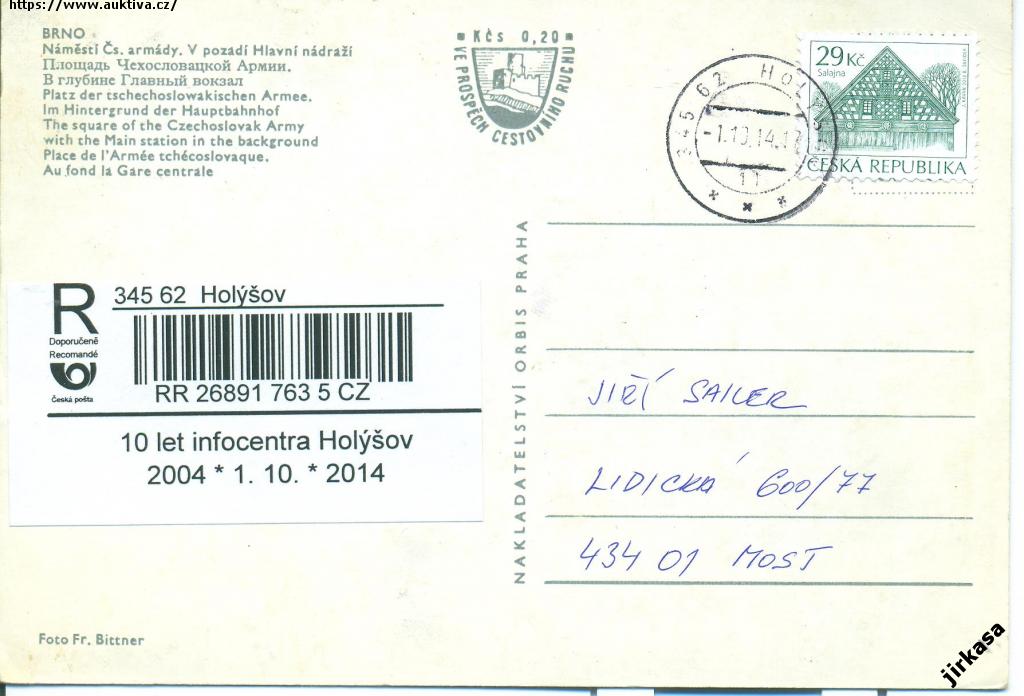 https://www.auktiva.cz/
BRNO
Náměstí Čs. armády. V pozadí Hlavní nádraží
Площадь Чехословацкой Армии.
В глубине Главный вокзал
Platz der tschechoslowakischen Armee.
Im Hintergrund der Hauptbahnhof
The square of the Czechoslovak Army
with the Main station in the background
Place de l'Armée tchécoslovaque.
Au fond la Gare centrale
Kčs 0,20
VE PROSPĚCH CESTOVNÍHO RUCHU
345 62
29 Kč
Salajna
ČESKÁ REPUBLIKA
R
Doporučeně
Recomandé
Česká pošta
345 62 Holýšov
RR 26891 763 5 CZ
10 let infocentra Holýšov
2004 * 1. 10. * 2014
NAKLADATELSTVÍ ORBIS PRAHA
JIŘÍ SAILER
LIDICKÁ 600/77
434 01 MOST
Foto Fr. Bittner
jirkasa